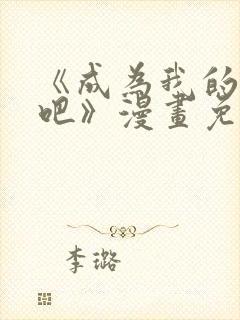 《成为我的
吧》漫畫免
李璐